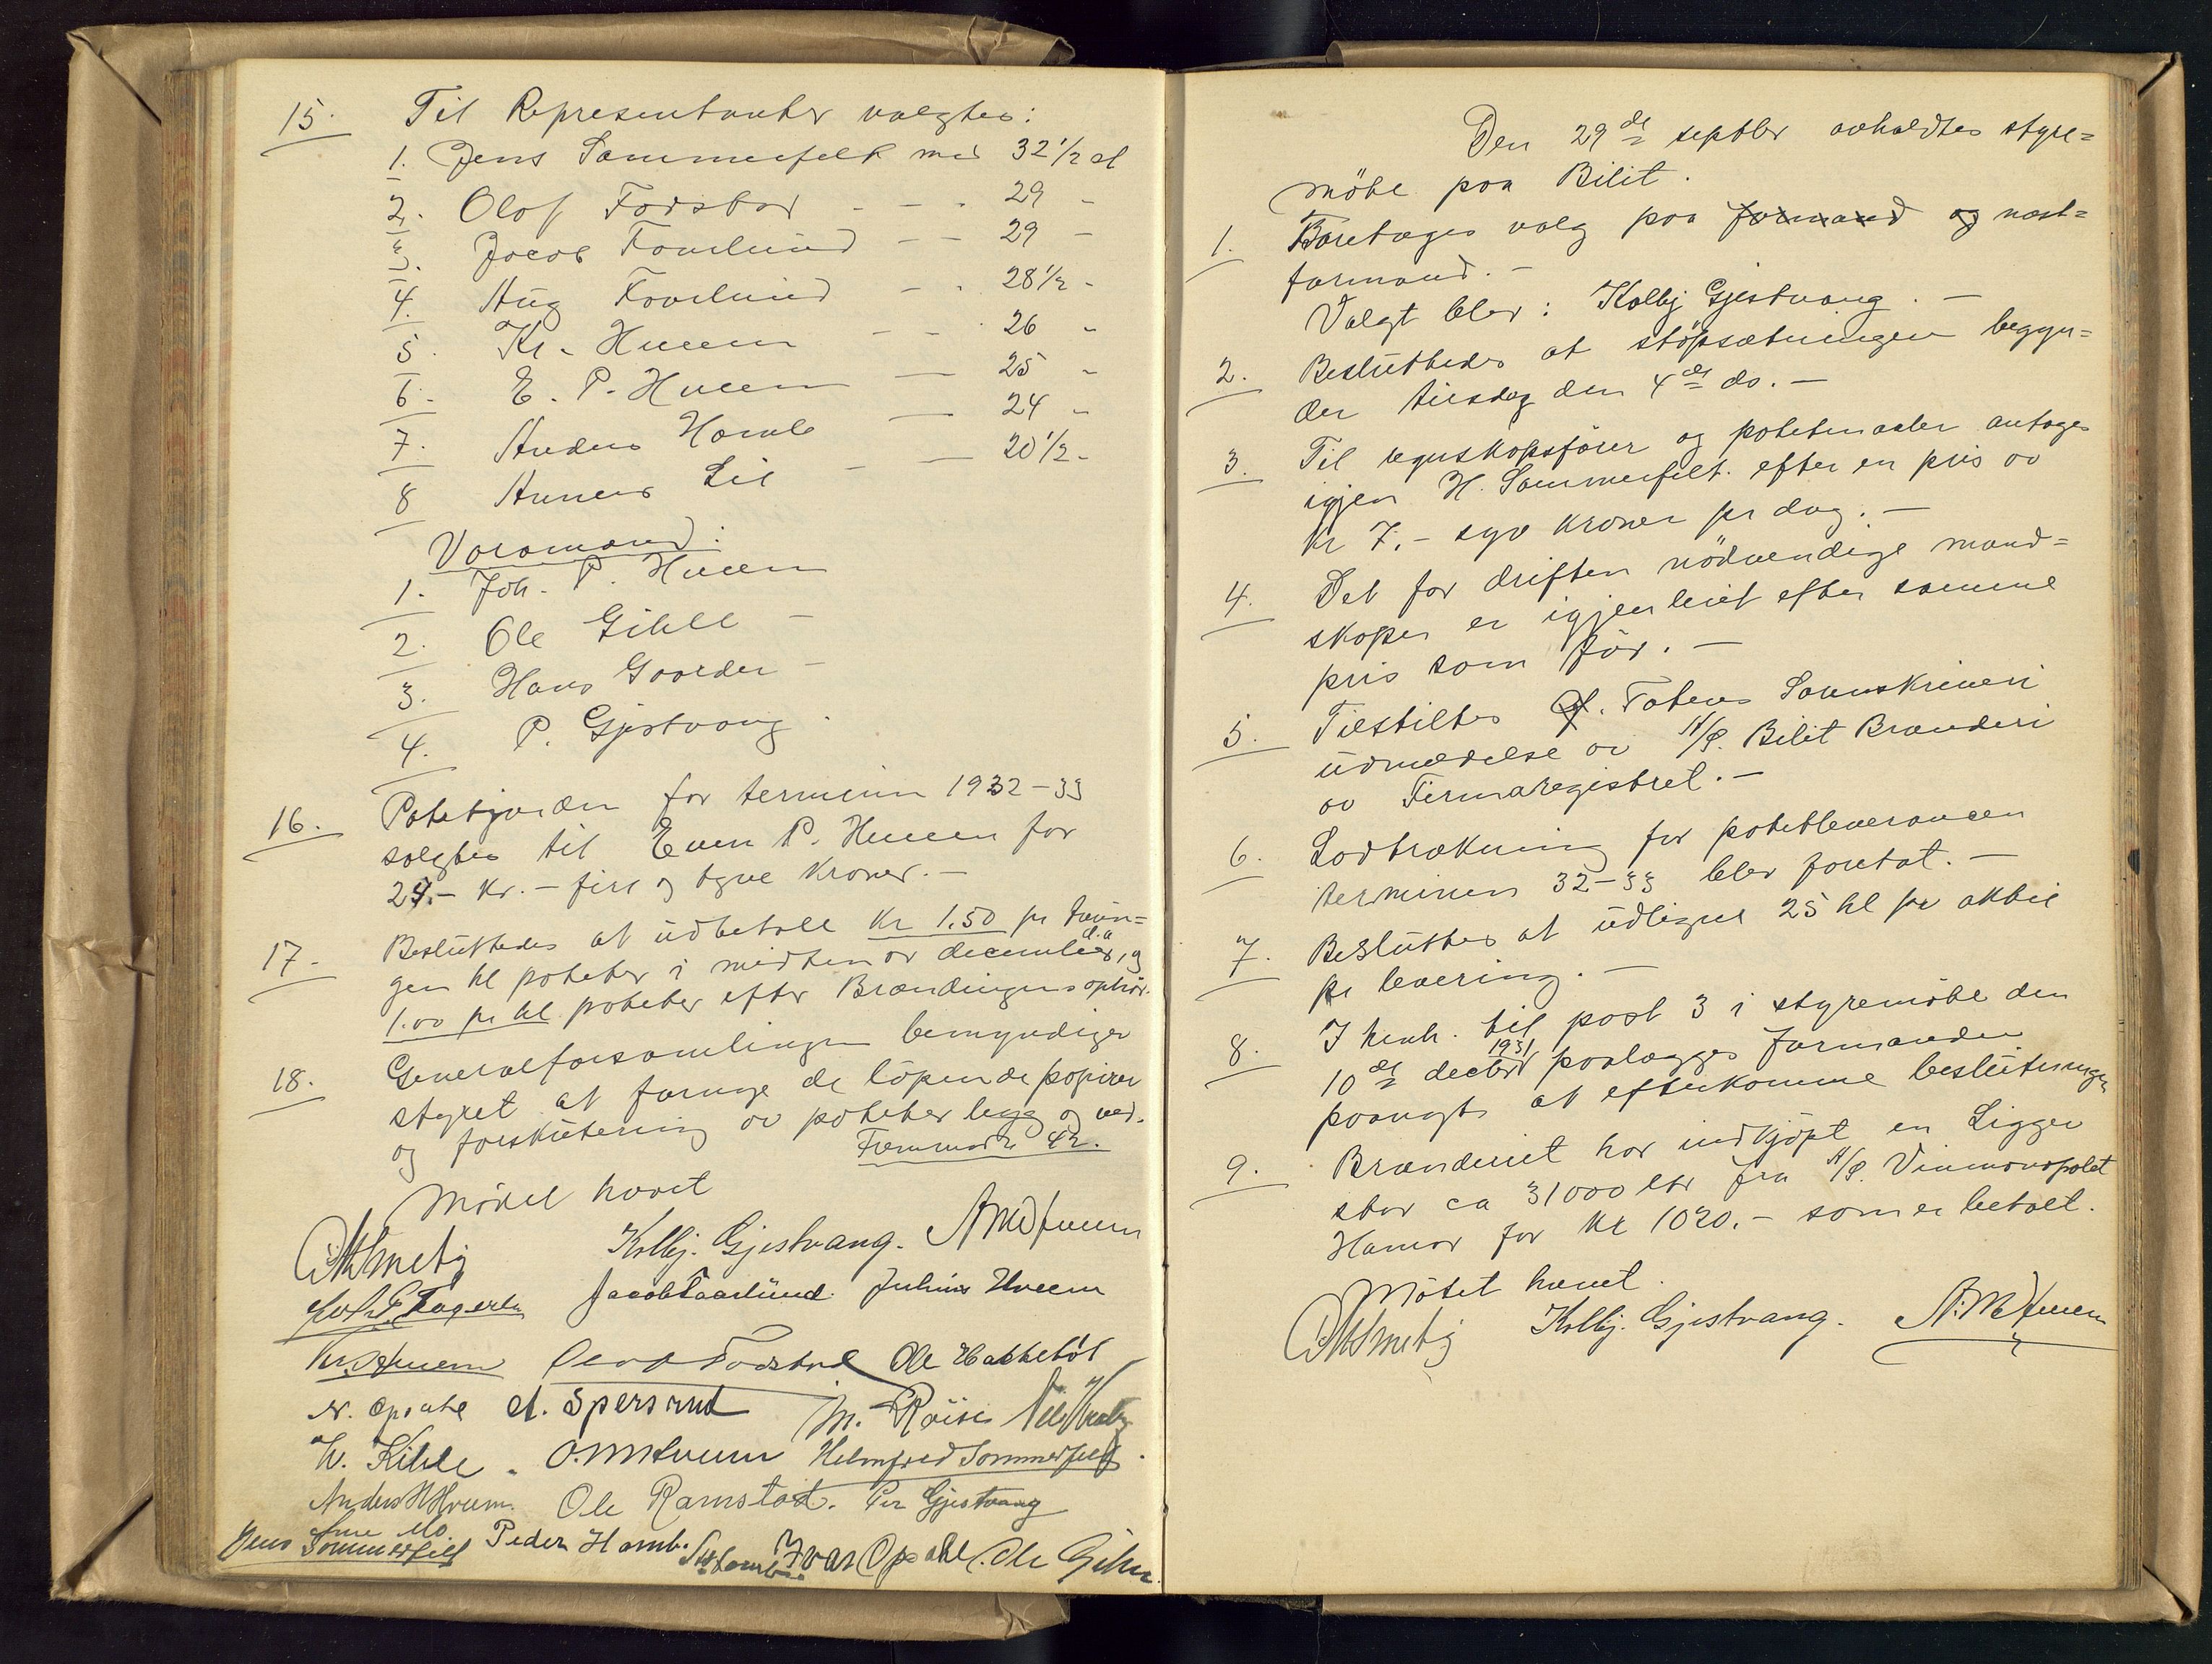 15. Til Representanter valgtes:
1. Jens Sommerfelt med 32 1/2 st
2. Olof Fodstad - - - 29 -
3. Jacob Faarlund - - 29 -
4. Aug Faarlund - - 28 1/2 -
5. Kr. Hveem - - 26 -
6. E. P. Hveem - 25 -
7. Anders Homb - 24 -
8 Lie - - 20 1/2 -
Varamænd:
1. Joh. P. Hveem
2. Ole Gihle -
3. Hans Gaarder -
4. P. Gjestvang
16. Potetjorden for terminen 1932-33
solgtes til Even P. Hveem for
24.- kr. - fire og tyve kroner. -
17. Besluttedes at udbetale kr 1.50 pr tøn=
gen hl poteter i midten av december d.a, og
1.00 pr hl poteter efter Brændingens ophør.
18. Generalforsamlingen bemyndiger
styret at fornye de löpende papirer
og forskutering av poteter bygg og ved.
Fremmødte 42.
Mødet hævet
Kolbj. Gjestvang. A M Hveem
Jacob Faarlund. Julius Hveem
Kr. Hveem Olof Fodstad Ole Hakketöt
N. Opsahl A. Spersrud M. Röise
W. Kihle. O. M. Hveem Helmfred Sommerfelt.
Anders H Hveem. Ole Ramstad. Per Gjestvang
Arne Mo.
Jens Sommerfelt Peder Homb. Ivar Opsahl. Ole Gihle.
Den 29de septbr avholdtes styre=
möte paa Bilit.
1. Foretages valg paa formand og næst=
formand. -
Valgt blev: Kolbj Gjestvang. -
2. Besluttedes at støpsætningen begyn=
der tirsdag den 4de ds. -
3. Til regnskapsfører og potetmaaler antages
igjen H. Sommerfelt. efter en pris av
kr 7.- syv kroner pr dag. -
4. Det for driften nödvendige mand=
skaper er igjen leiet efter samme
pris som för. -
5. Tilstiltes Ø. Totens Sorenskriveri
udmældelse av A/S. Bilit Brænderi
av Firmaregistret. -
6. Lodtrækning for potetleverancen
terminen 32-33 blev foretat. -
7. Besluttes at udligne 25 hl pr aktie
pr levering. -
8. I henh. til post 3 i styremöte den
10de decbr 1931 paalægges formanden
at efterkomme beslutningen
9. Brænderiet har indkjöpt en Ligger
stor ca 31000 ltr fra A/S. Vinmonopolet
Hamar for kr 1020.- som er betalt.
Mötet hævet.
Kolbj. Gjestvang. A. M. Hveem